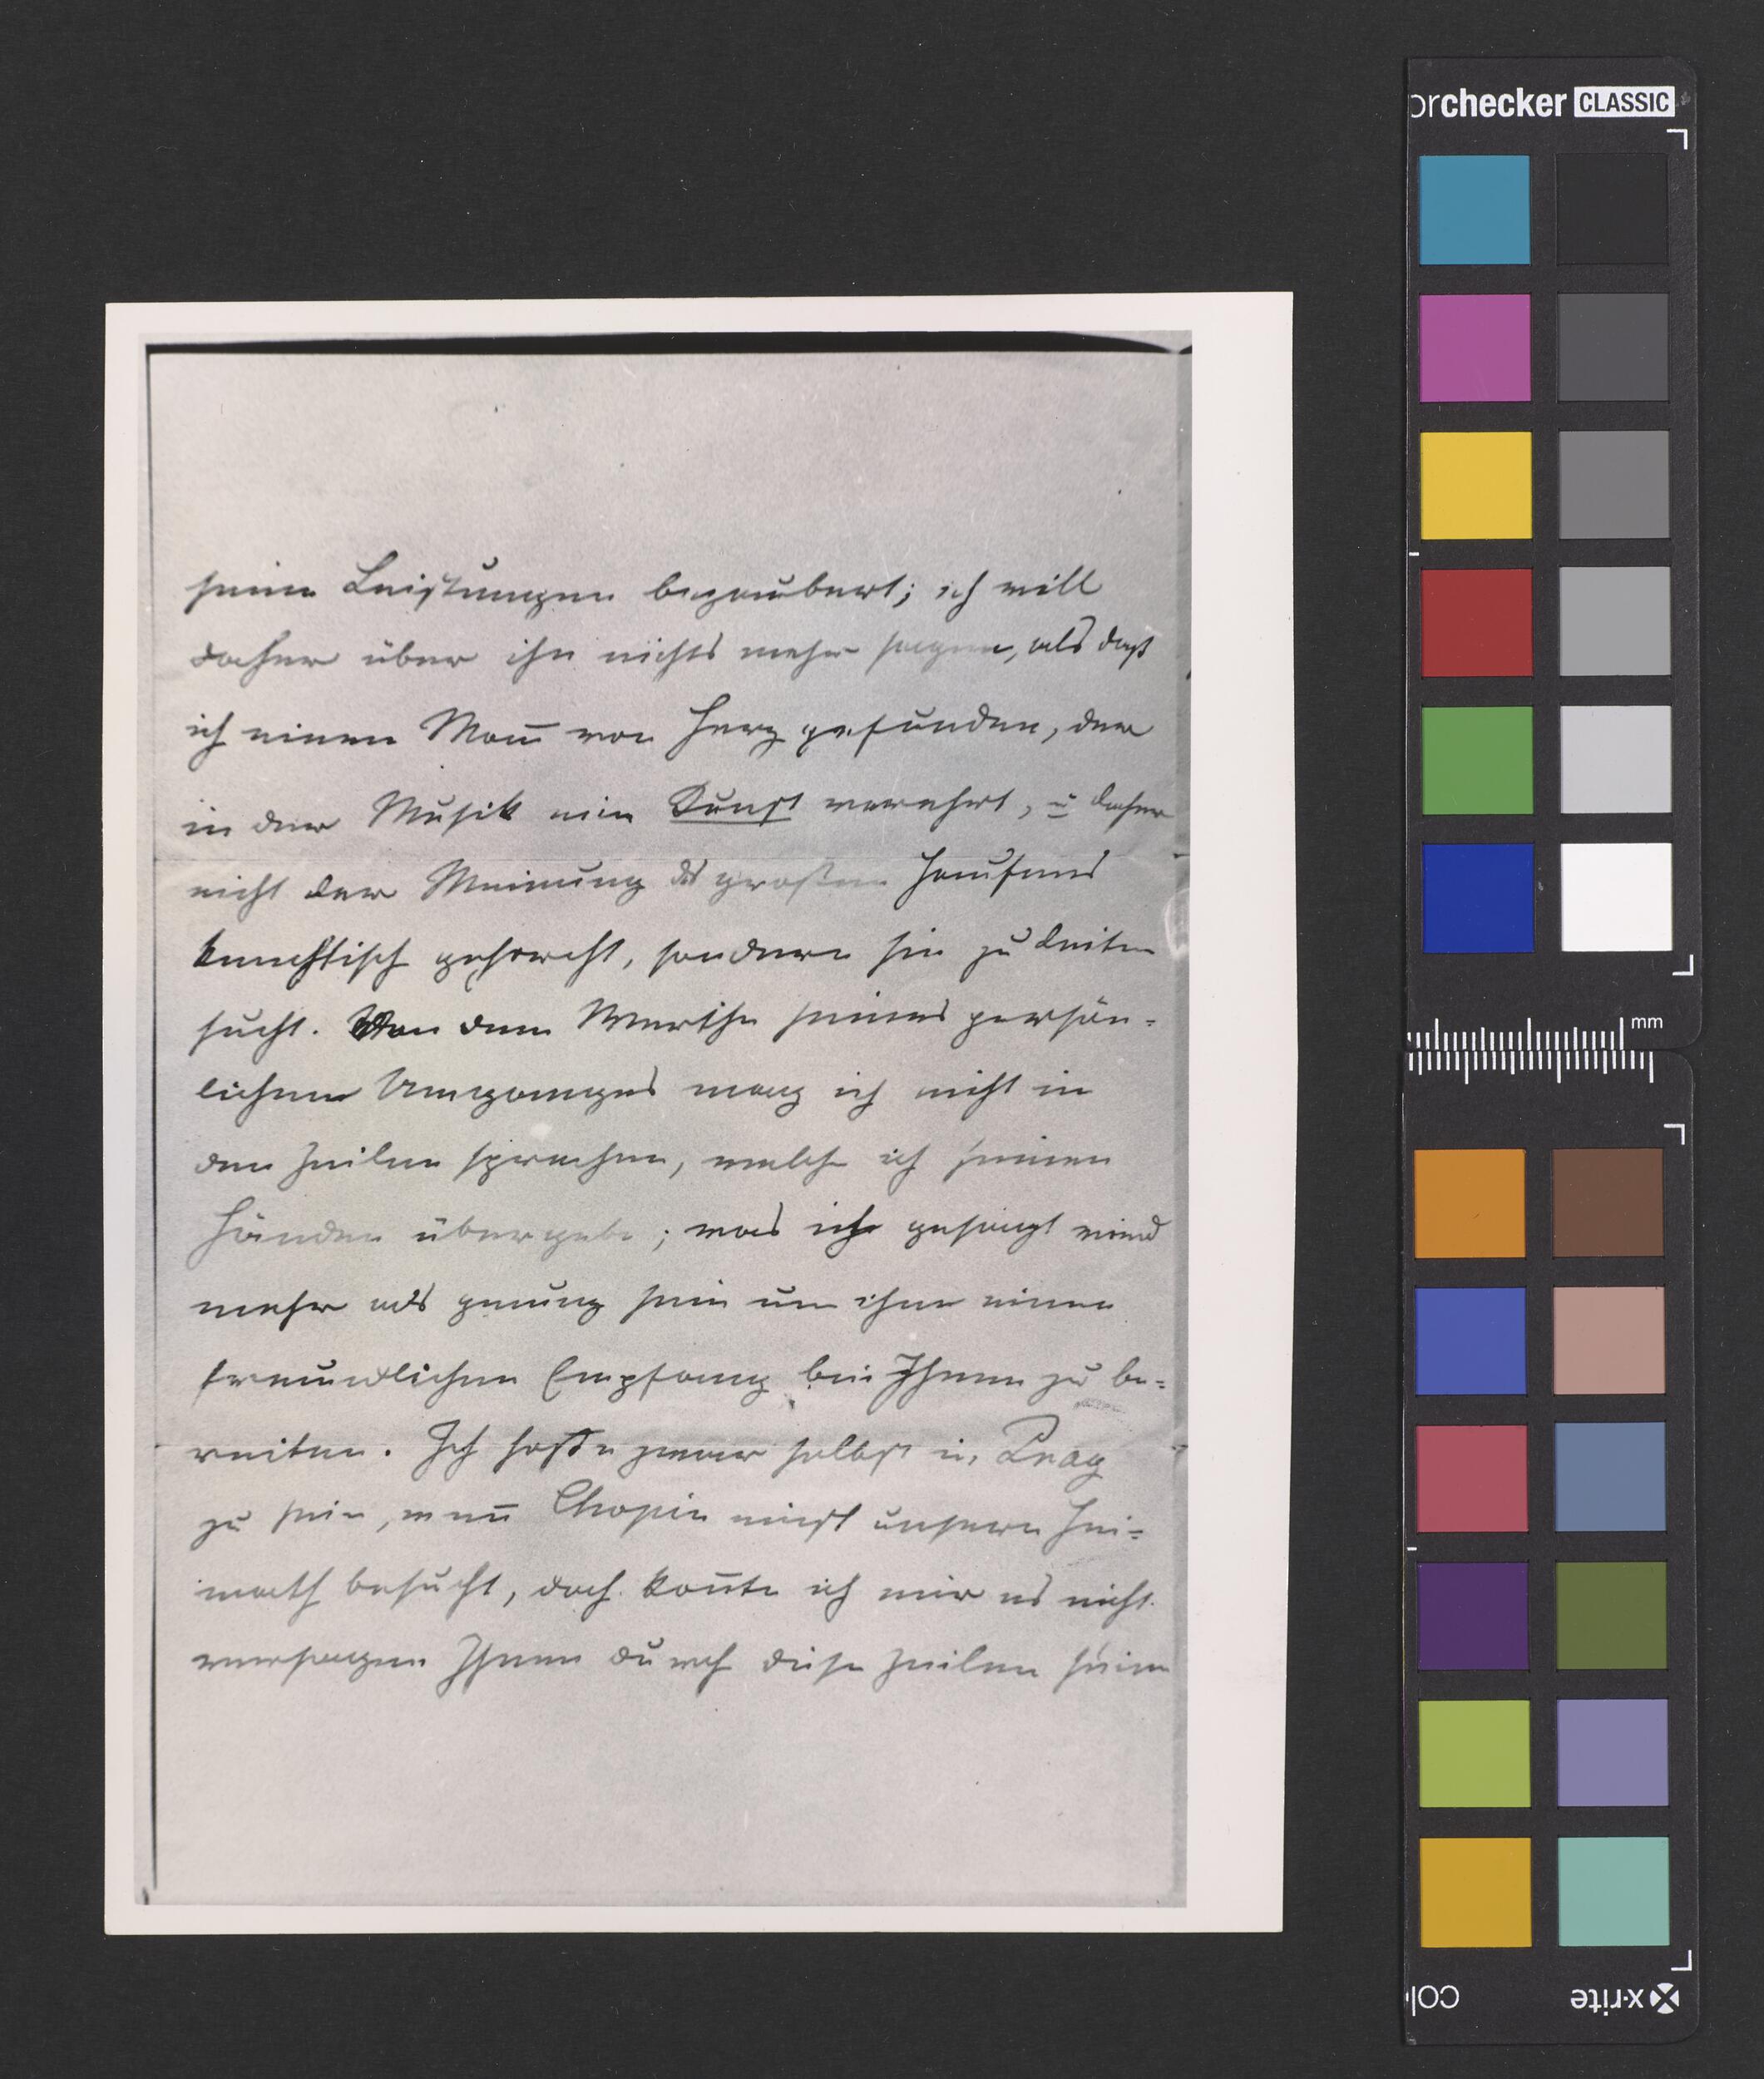 orchecker CLASSIC
seine Leistungen bezaubert; ich will
daher über ihn nichts mehr sagen, als daß
ich einen Mañ von Herz gefunden, der
in der Musik eine Kunst verehrt, u daher
nicht der Meinung des großen Haufens
knechtisch gehorcht, sondern sie zu leiten
sucht. Von dem Werthe seines persön=
lichen Umganges mag ich nicht in
den Zeilen sprechen, welche ich seinen
Händen übergebe; was ich gesagt wird
mehr als genug sein um ihm einen
freundlichen Empfang bei Ihnen zu be=
reiten. Ich hoffe zwar selbst in Prag
zu sein, weñ Chopin einst unsere Hei=
math besucht, doch koñte ich mir es nicht
versagen Ihnen durch diese Zeilen seine
mm
col
x-rite